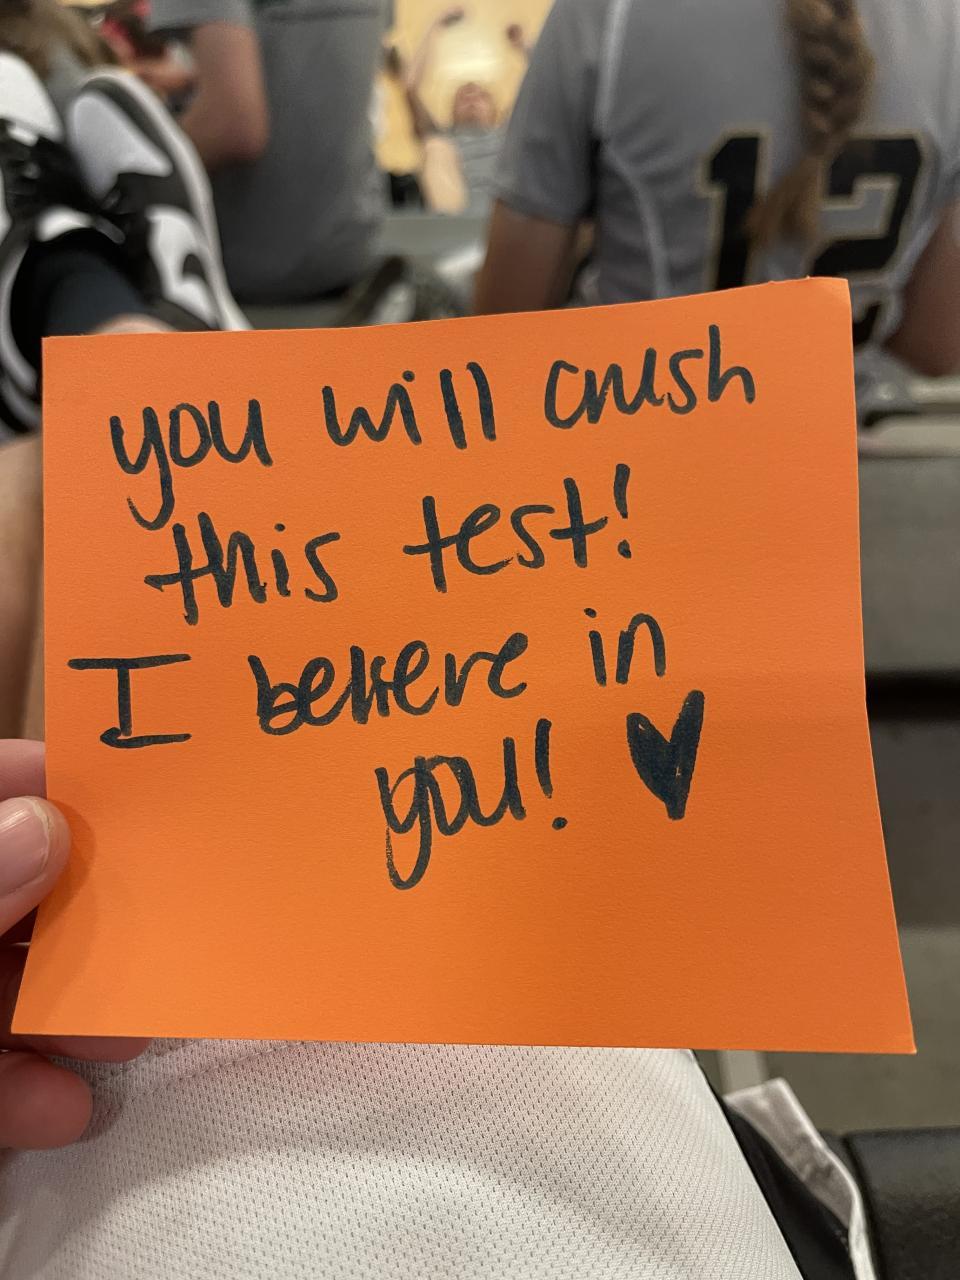 12
you will crush
this test!
I believe in
you! ♥